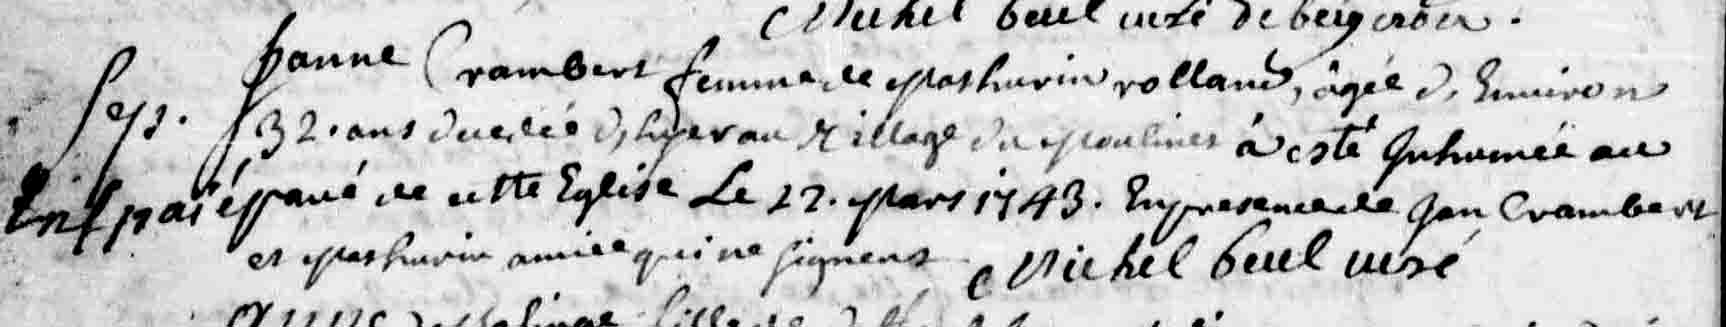 Michel beul curé de bergerou.
Janne Crambert femme de Mathurin rolland, agée d'Environ
Sep. 32. ans decedée d'hyer au Village du Moulines à esté Inhumée au
pavé de cette Eglise Le 22. Mars 1743. En presence de Jan Crambert
et Mathurin amice qui ne signent Michel beul curé
fille de